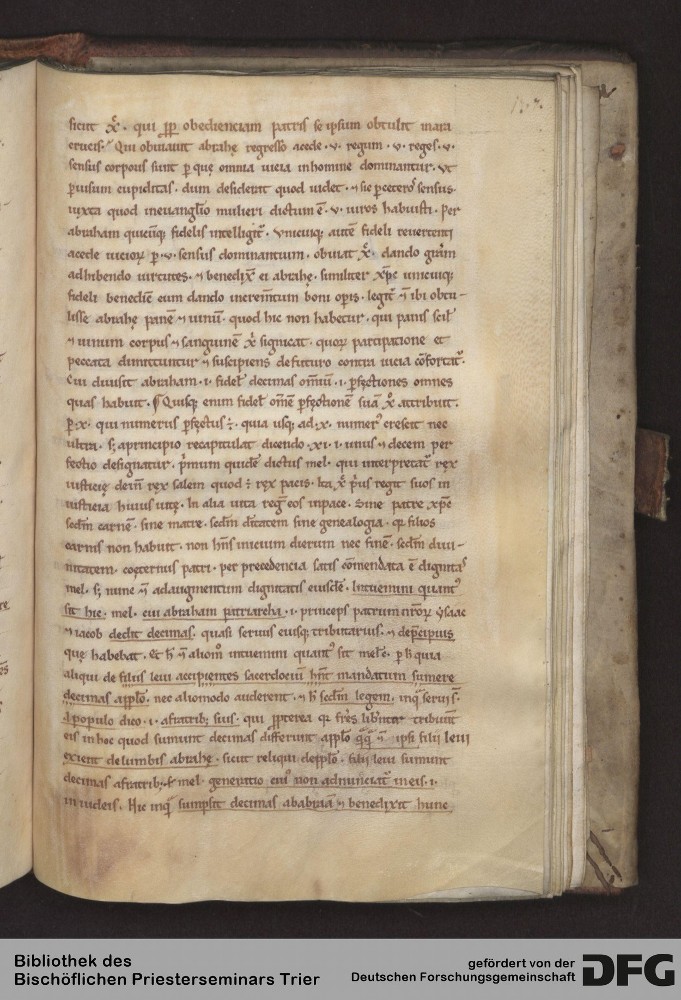 sicut xp̄c. qui ꝓpt̄ obedienciam patris se ipsum obtulit in ara
crucis. Qui obviauit abrahę regresso a cede .v. regum. v. reges .v.
sensus corporis sunt p̄ quę omnia uicia in homine dominantur. Vt
p̄ uisum cupiditas. dum desiderat quod uidet. ⁊ sic p̄ ceteros sensus.
iuxta quod in euanglio mulieri dictum ē. v. uiros habuisti. Per
abraham quicūq; fidelis intelligit᷑. Vnicuiq; autē fideli reuertenti
a cede uicioꝝ p̄ .v. sensus dominantium. obuiat xp̄c. dando gr̄am
adhibendo uirtutes. ⁊ benedix̄ ei abrahę. similiter xp̄c unicuiq;
fideli benedic̄ eum dando increm̄tum boni op̄is. legit᷑ ibi obtu-
lisse abrahę panē ⁊ uinū. quod hic non habetur. qui panis scił
⁊ uinum corpus ⁊ sanguinem xp̄i significat. quoꝝ participacione et
peccata dimittuntur ⁊ suscipiens de futuro contra uicia cōfortat᷑.
Cui diuisit abraham .i. fidelis decimas omniū .i. ꝑfectiones omnes
quas habuit. Quisq; enim fidel' omnē ꝑfectionē suā xp̄o attribuit.
ꝑ .x. qui numerus ꝑfectus ē. quia usq; ad .x. numer' crescit nec
ultra. s; a principio recapitulat dicendo .xi. i. unus ⁊ decem per
fectio designatur. p̄mum quidē dictus mel. qui interpretat᷑ rex
iusticię dein̄ rex salem quod ē rex pacis. Ita xp̄c p̄us regit suos in
iusticia huius uitę. In alia uita reget eos in pace. Sine patre xp̄c
sc̄dm carnē. sine matre. sc̄dm diuītatem sine genealogia. q̄ filios
carnis non habuit. non hn̄s inicium dierum nec finē. sc̄dm diui-
nitatem. coęternus patri. per precedencia satis cōmendata ē dignitas
mel. s; nunc ad augmentum dignitatis eiusdē. Intuemini quant'
sit hic. mel. cui abraham patriarcha .i. princeps patrum nr̄oꝝ ysaac
⁊ iacob dedit decimas. quasi seruus eiusq; tributarius. ⁊ de p̄cipuis
quę habebat. Et aliom̄ intuemini quant' sit melc. quia
aliqui de filiis leui accipientes sacerdociū hn̄t mandatum sumere
decimas a pp̄lo. nec aliomodo auderent. ⁊ h̄ sc̄dm legem. inq̄
a populo dico .i. a fratrib; suis. qui ꝓpterea q̄ fr̄es
eis in hoc quod sumunt decimas differunt a pp̄lo ipsi filii leui
exient de lumbis abrahę. sicut reliqui de pp̄lo. filii leui sumunt
decimas a fratrib; mel. generatio eius non adnunciat᷑ in eis .i.
in iudeis. Hic inq̄ sumpsit decimas ab abrāa ⁊ benedixit hunc
Bibliothek des
Bischöflichen Priesterseminars Trier
gefördert von der
Deutschen Forschungsgemeinschaft
DFG